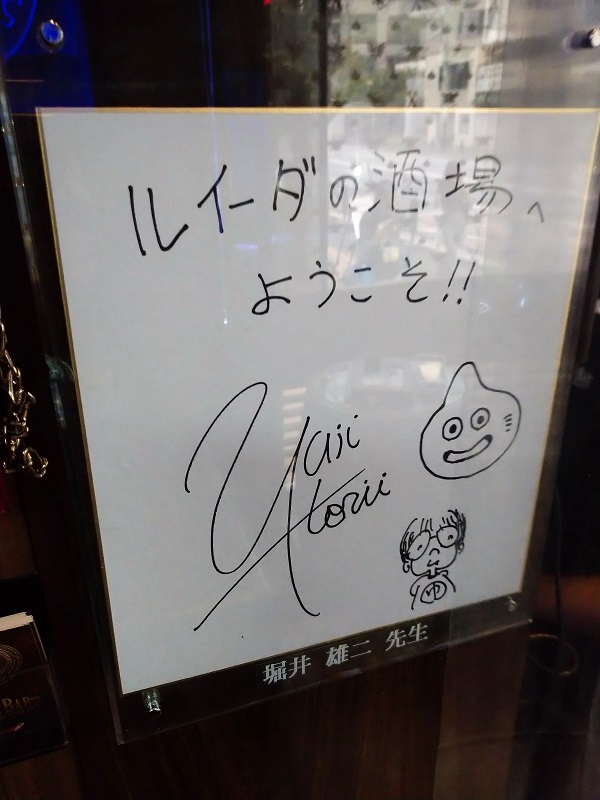 ルイーダの酒場へ
ようこそ!!
Yuji
Horii
ゆ
堀井 雄二 先生